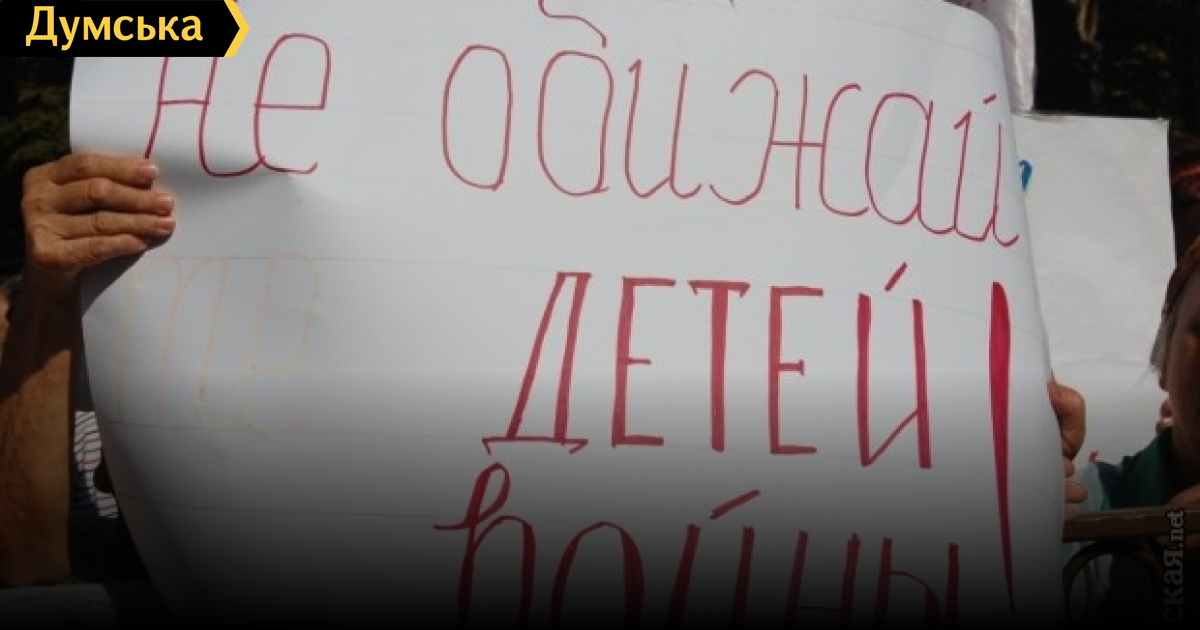 Думська
не обижай
ДЕТЕЙ
войны!
ская.net